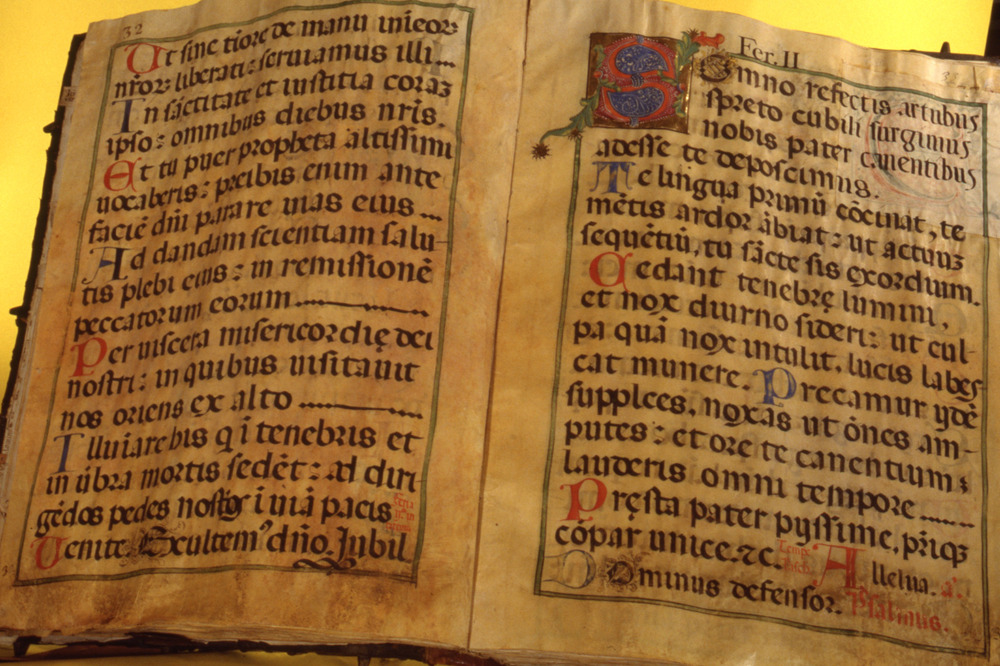 32
Ut sine tiore de manu inieor:
nror: liberati: seruiamus illi...
In sactitate et iustitia coraz
ipso: omnibus diebus nris.
Et tu puer propheta altissimi
uocaberis: preibis enim ante
facie dni parare uias eius ...
Ad dandam scientiam salu-
tis plebi eius: in remissionē
peccatorum eorum
Per uiscera misericordię dei
nostri: in quibus uisitauit
nos oriens ex alto
Illuiare his q i tenebris et
in ubra mortis sedēt: ad diri-
gēdos pedes nostros i uia pacis
Uenite Exultemꝰ dño. Jubil
Fer. II
Somno refectis artubus
spreto cubili surgimus
nobis pater canentibus
adesse te deposcimus.
Te lingua primū cōcinat, te
mētis ardor ābiat: ut actuuz
sequētiū, tu sācte sis exordium.
Cedant tenebrę lumini,
et nox diurno sideri: ut cul-
pa quā nox intulit, lucis labes
cat munere. Precamur ydē
supplces, noxas ut ōnes am-
putes: et ore te canentium
lauderis omni tempore
Pręsta pater pyssime, priq
cōpar unice. ⁊c. Allelua. a.
Dominus defensor. Psalmus.